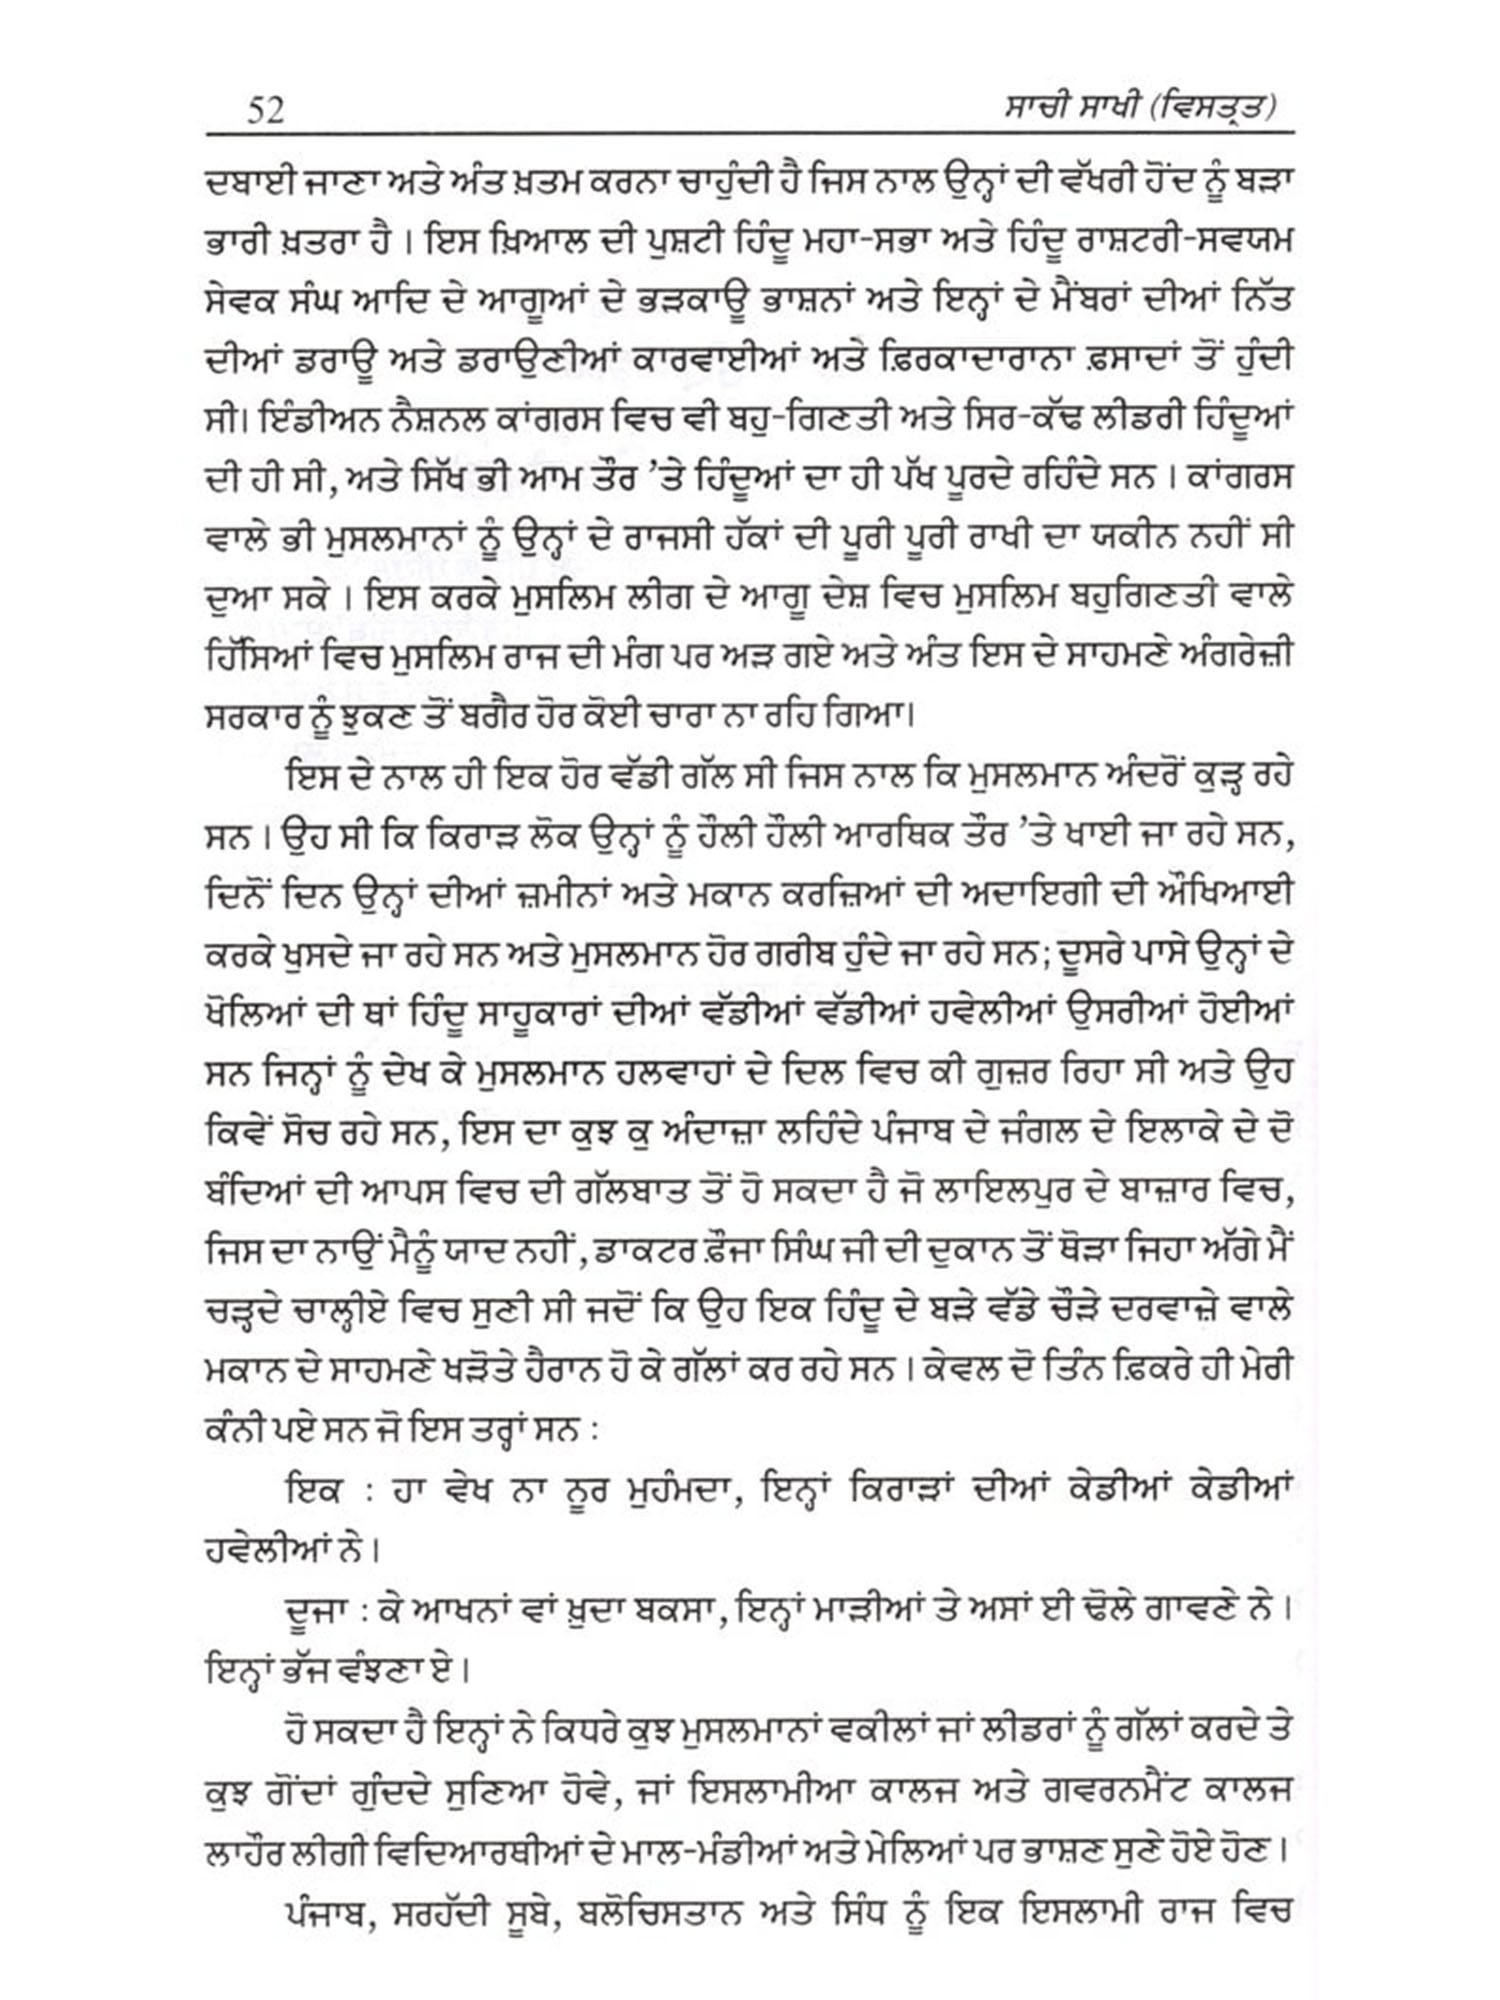 52
ਸਾਚੀ ਸਾਖੀ (ਵਿਸਤ੍ਰਤ)
ਦਬਾਈ ਜਾਣਾ ਅਤੇ ਅੰਤ ਖ਼ਤਮ ਕਰਨਾ ਚਾਹੁੰਦੀ ਹੈ ਜਿਸ ਨਾਲ ਉਨ੍ਹਾਂ ਦੀ ਵੱਖਰੀ ਹੋਂਦ ਨੂੰ ਬੜਾ
ਭਾਰੀ ਖ਼ਤਰਾ ਹੈ। ਇਸ ਖ਼ਿਆਲ ਦੀ ਪੁਸ਼ਟੀ ਹਿੰਦੂ ਮਹਾ-ਸਭਾ ਅਤੇ ਹਿੰਦੂ ਰਾਸ਼ਟਰੀ-ਸਵਯਮ
ਸੇਵਕ ਸੰਘ ਆਦਿ ਦੇ ਆਗੂਆਂ ਦੇ ਭੜਕਾਊ ਭਾਸ਼ਨਾਂ ਅਤੇ ਇਨ੍ਹਾਂ ਦੇ ਮੈਂਬਰਾਂ ਦੀਆਂ ਨਿੱਤ
ਦੀਆਂ ਡਰਾਊ ਅਤੇ ਡਰਾਉਣੀਆਂ ਕਾਰਵਾਈਆਂ ਅਤੇ ਫ਼ਿਰਕਾਦਾਰਾਨਾ ਫ਼ਸਾਦਾਂ ਤੋਂ ਹੁੰਦੀ
ਸੀ। ਇੰਡੀਅਨ ਨੈਸ਼ਨਲ ਕਾਂਗਰਸ ਵਿਚ ਵੀ ਬਹੁ-ਗਿਣਤੀ ਅਤੇ ਸਿਰ-ਕੱਢ ਲੀਡਰੀ ਹਿੰਦੂਆਂ
ਦੀ ਹੀ ਸੀ, ਅਤੇ ਸਿੱਖ ਭੀ ਆਮ ਤੌਰ 'ਤੇ ਹਿੰਦੂਆਂ ਦਾ ਹੀ ਪੱਖ ਪੂਰਦੇ ਰਹਿੰਦੇ ਸਨ। ਕਾਂਗਰਸ
ਵਾਲੇ ਭੀ ਮੁਸਲਮਾਨਾਂ ਨੂੰ ਉਨ੍ਹਾਂ ਦੇ ਰਾਜਸੀ ਹੱਕਾਂ ਦੀ ਪੂਰੀ ਪੂਰੀ ਰਾਖੀ ਦਾ ਯਕੀਨ ਨਹੀਂ ਸੀ
ਦੁਆ ਸਕੇ। ਇਸ ਕਰਕੇ ਮੁਸਲਿਮ ਲੀਗ ਦੇ ਆਗੂ ਦੇਸ਼ ਵਿਚ ਮੁਸਲਿਮ ਬਹੁਗਿਣਤੀ ਵਾਲੇ
ਹਿੱਸਿਆਂ ਵਿਚ ਮੁਸਲਿਮ ਰਾਜ ਦੀ ਮੰਗ ਪਰ ਅੜ ਗਏ ਅਤੇ ਅੰਤ ਇਸ ਦੇ ਸਾਹਮਣੇ ਅੰਗਰੇਜ਼ੀ
ਸਰਕਾਰ ਨੂੰ ਝੁਕਣ ਤੋਂ ਬਗੈਰ ਹੋਰ ਕੋਈ ਚਾਰਾ ਨਾ ਰਹਿ ਗਿਆ।
ਇਸ ਦੇ ਨਾਲ ਹੀ ਇਕ ਹੋਰ ਵੱਡੀ ਗੱਲ ਸੀ ਜਿਸ ਨਾਲ ਕਿ ਮੁਸਲਮਾਨ ਅੰਦਰੋਂ ਕੁੜ੍ਹ ਰਹੇ
ਸਨ। ਉਹ ਸੀ ਕਿ ਕਿਰਾੜ ਲੋਕ ਉਨ੍ਹਾਂ ਨੂੰ ਹੌਲੀ ਹੌਲੀ ਆਰਥਿਕ ਤੌਰ 'ਤੇ ਖਾਈ ਜਾ ਰਹੇ ਸਨ,
ਦਿਨੋਂ ਦਿਨ ਉਨ੍ਹਾਂ ਦੀਆਂ ਜ਼ਮੀਨਾਂ ਅਤੇ ਮਕਾਨ ਕਰਜ਼ਿਆਂ ਦੀ ਅਦਾਇਗੀ ਦੀ ਔਖਿਆਈ
ਕਰਕੇ ਖੁਸਦੇ ਜਾ ਰਹੇ ਸਨ ਅਤੇ ਮੁਸਲਮਾਨ ਹੋਰ ਗਰੀਬ ਹੁੰਦੇ ਜਾ ਰਹੇ ਸਨ; ਦੂਸਰੇ ਪਾਸੇ ਉਨ੍ਹਾਂ ਦੇ
ਖੋਲਿਆਂ ਦੀ ਥਾਂ ਹਿੰਦੂ ਸਾਹੂਕਾਰਾਂ ਦੀਆਂ ਵੱਡੀਆਂ ਵੱਡੀਆਂ ਹਵੇਲੀਆਂ ਉਸਰੀਆਂ ਹੋਈਆਂ
ਸਨ ਜਿਨ੍ਹਾਂ ਨੂੰ ਦੇਖ ਕੇ ਮੁਸਲਮਾਨ ਹਲਵਾਹਾਂ ਦੇ ਦਿਲ ਵਿਚ ਕੀ ਗੁਜ਼ਰ ਰਿਹਾ ਸੀ ਅਤੇ ਉਹ
ਕਿਵੇਂ ਸੋਚ ਰਹੇ ਸਨ, ਇਸ ਦਾ ਕੁਝ ਕੁ ਅੰਦਾਜ਼ਾ ਲਹਿੰਦੇ ਪੰਜਾਬ ਦੇ ਜੰਗਲ ਦੇ ਇਲਾਕੇ ਦੇ ਦੋ
ਬੰਦਿਆਂ ਦੀ ਆਪਸ ਵਿਚ ਦੀ ਗੱਲਬਾਤ ਤੋਂ ਹੋ ਸਕਦਾ ਹੈ ਜੋ ਲਾਇਲਪੁਰ ਦੇ ਬਾਜ਼ਾਰ ਵਿਚ,
ਜਿਸ ਦਾ ਨਾਉਂ ਮੈਨੂੰ ਯਾਦ ਨਹੀਂ, ਡਾਕਟਰ ਫ਼ੌਜਾ ਸਿੰਘ ਜੀ ਦੀ ਦੁਕਾਨ ਤੋਂ ਥੋੜਾ ਜਿਹਾ ਅੱਗੇ ਮੈਂ
ਚੜ੍ਹਦੇ ਚਾਲ੍ਹੀਏ ਵਿਚ ਸੁਣੀ ਸੀ ਜਦੋਂ ਕਿ ਉਹ ਇਕ ਹਿੰਦੂ ਦੇ ਬੜੇ ਵੱਡੇ ਚੌੜੇ ਦਰਵਾਜ਼ੇ ਵਾਲੇ
ਮਕਾਨ ਦੇ ਸਾਹਮਣੇ ਖੜੋਤੇ ਹੈਰਾਨ ਹੋ ਕੇ ਗੱਲਾਂ ਕਰ ਰਹੇ ਸਨ। ਕੇਵਲ ਦੋ ਤਿੰਨ ਫ਼ਿਕਰੇ ਹੀ ਮੇਰੀ
ਕੰਨੀ ਪਏ ਸਨ ਜੋ ਇਸ ਤਰ੍ਹਾਂ ਸਨ :
ਇਕ : ਹਾ ਵੇਖ ਨਾ ਨੂਰ ਮੁਹੰਮਦਾ, ਇਨ੍ਹਾਂ ਕਿਰਾੜਾਂ ਦੀਆਂ ਕੇਡੀਆਂ ਕੇਡੀਆਂ
ਹਵੇਲੀਆਂ ਨੇ।
ਦੂਜਾ : ਕੇ ਆਖਨਾਂ ਵਾਂ ਖ਼ੁਦਾ ਬਕਸਾ, ਇਨ੍ਹਾਂ ਮਾੜੀਆਂ ਤੇ ਅਸਾਂ ਈ ਢੋਲੇ ਗਾਵਣੇ ਨੇ।
ਇਨ੍ਹਾਂ ਭੱਜ ਵੰਝਣਾ ਏ।
ਹੋ ਸਕਦਾ ਹੈ ਇਨ੍ਹਾਂ ਨੇ ਕਿਧਰੇ ਕੁਝ ਮੁਸਲਮਾਨਾਂ ਵਕੀਲਾਂ ਜਾਂ ਲੀਡਰਾਂ ਨੂੰ ਗੱਲਾਂ ਕਰਦੇ ਤੇ
ਕੁਝ ਗੋਂਦਾਂ ਗੁੰਦਦੇ ਸੁਣਿਆ ਹੋਵੇ, ਜਾਂ ਇਸਲਾਮੀਆ ਕਾਲਜ ਅਤੇ ਗਵਰਨਮੈਂਟ ਕਾਲਜ
ਲਾਹੌਰ ਲੀਗੀ ਵਿਦਿਆਰਥੀਆਂ ਦੇ ਮਾਲ-ਮੰਡੀਆਂ ਅਤੇ ਮੇਲਿਆਂ ਪਰ ਭਾਸ਼ਣ ਸੁਣੇ ਹੋਏ ਹੋਣ।
ਪੰਜਾਬ, ਸਰਹੱਦੀ ਸੂਬੇ, ਬਲੋਚਿਸਤਾਨ ਅਤੇ ਸਿੰਧ ਨੂੰ ਇਕ ਇਸਲਾਮੀ ਰਾਜ ਵਿਚ